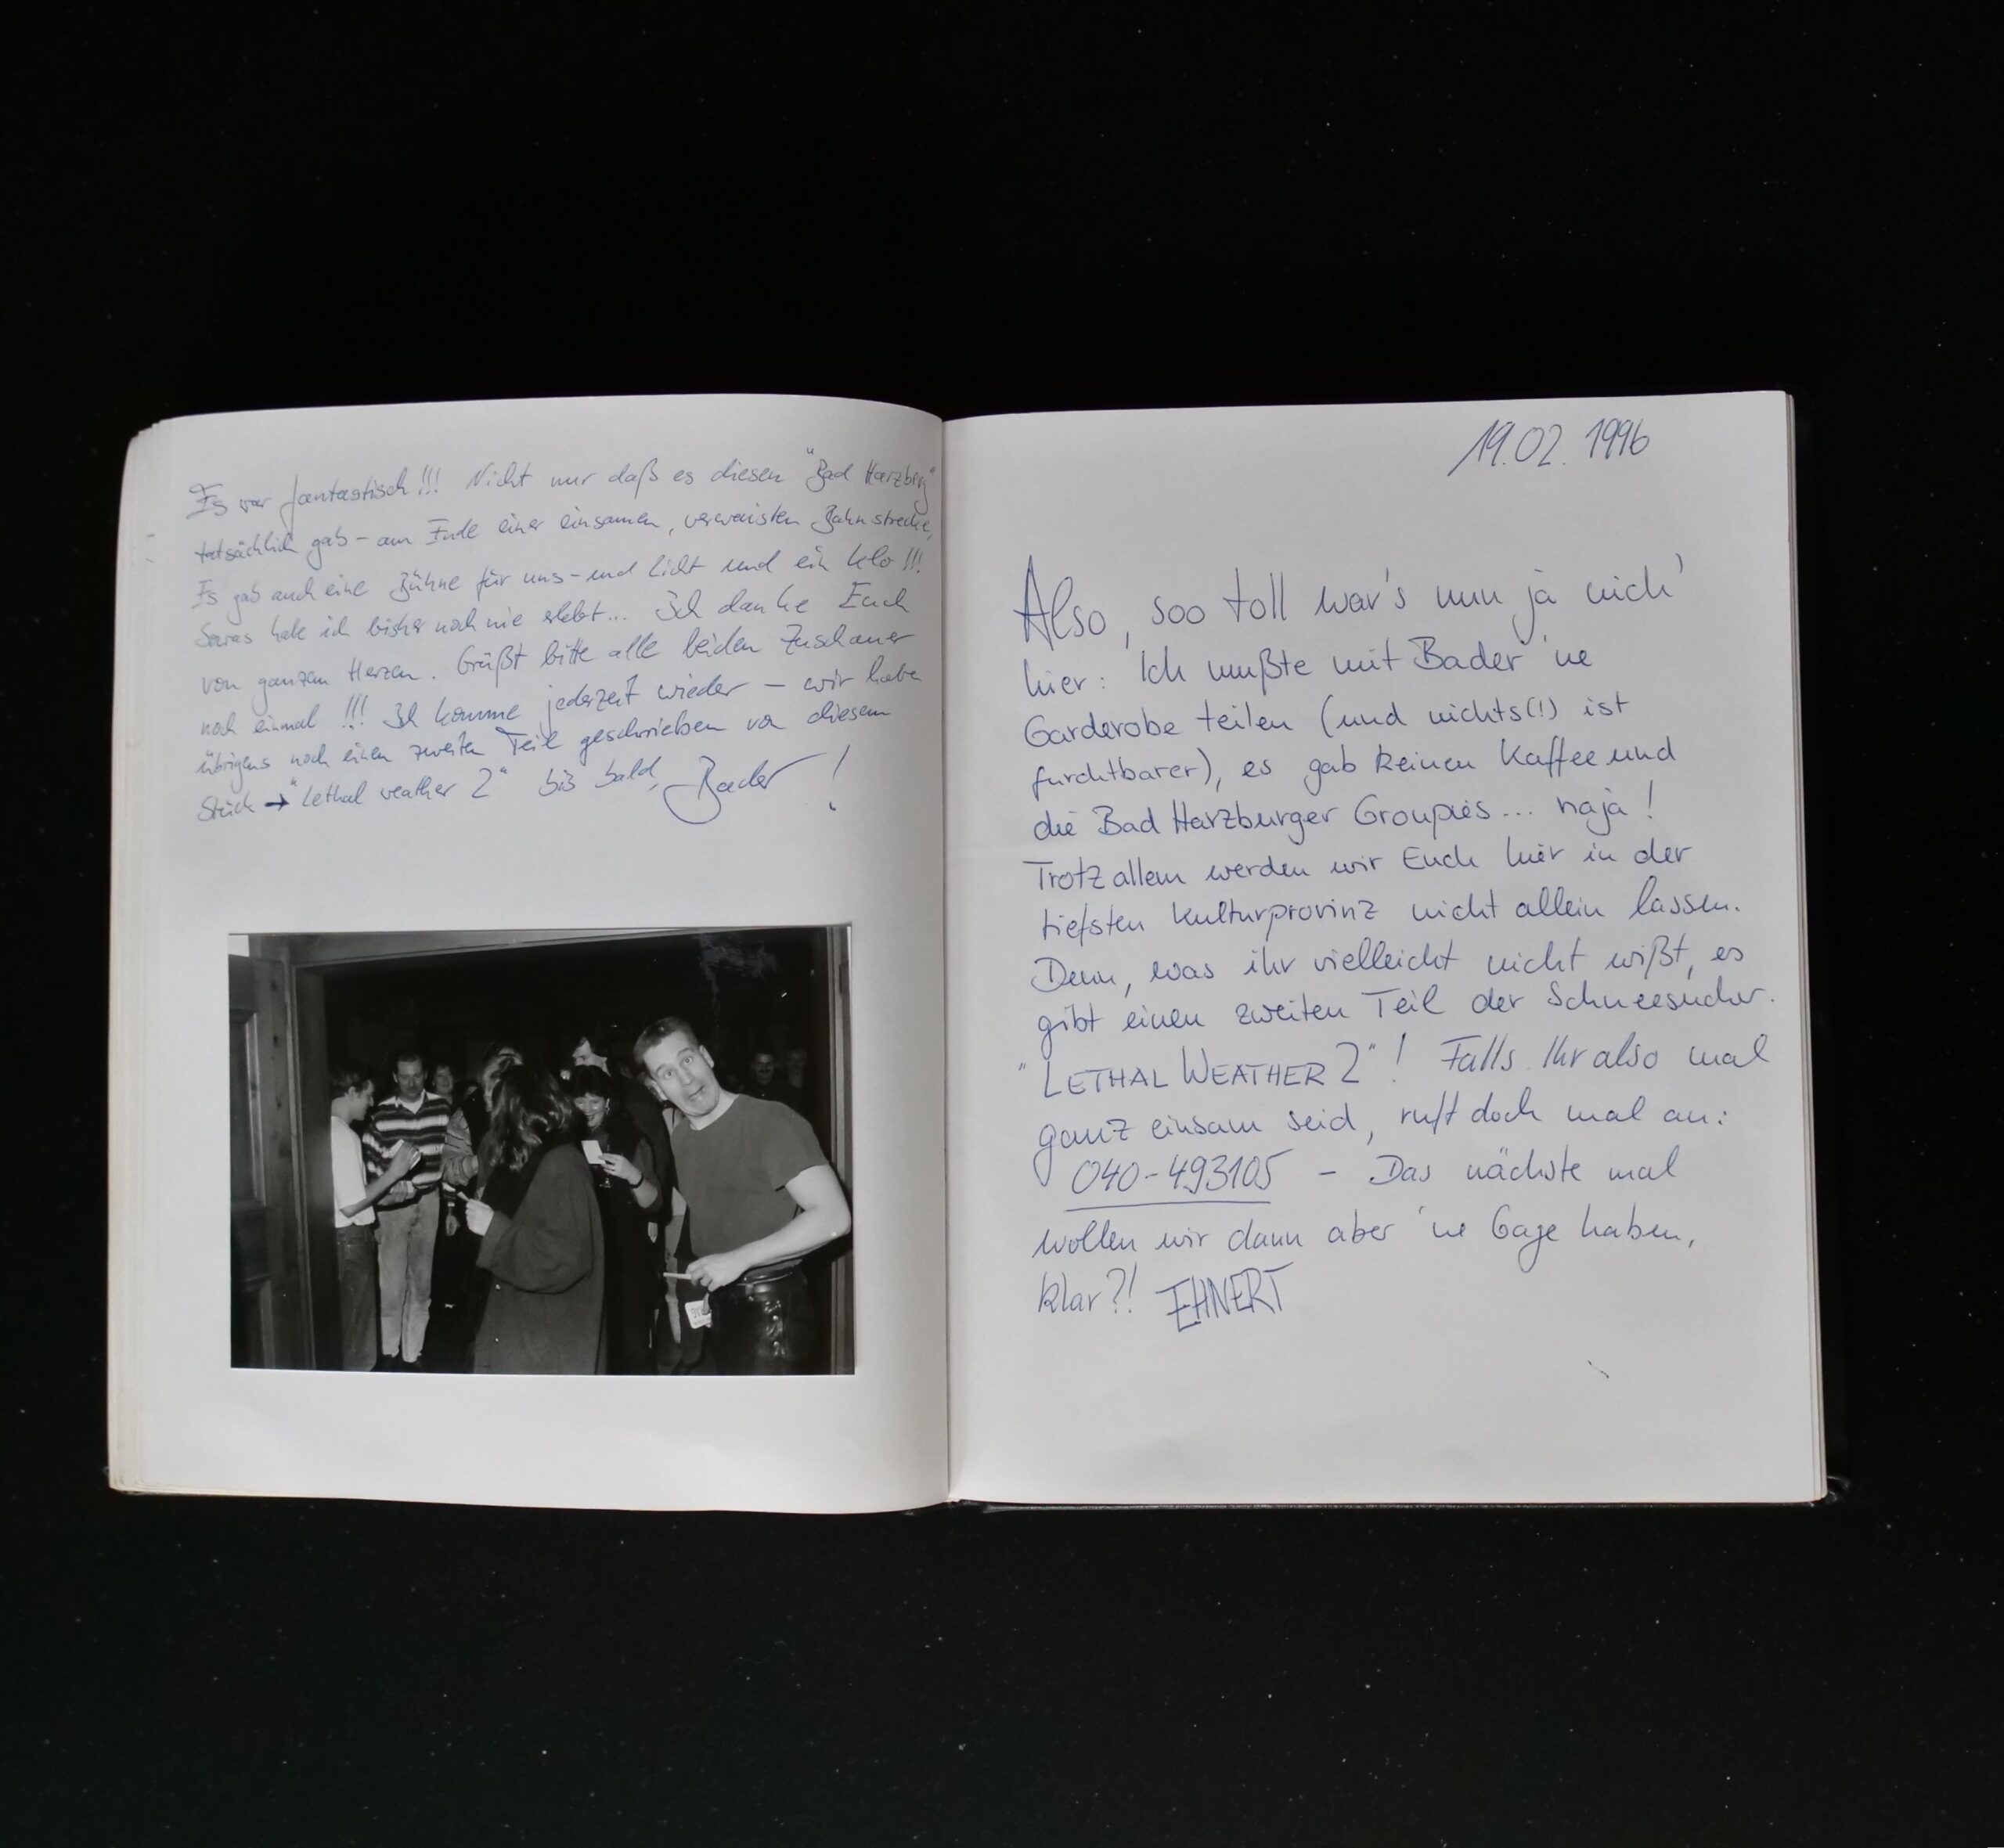 Es war fantastisch!!! Nicht nur daß es diesen "Bad Harzburg"
tatsächlich gab – am Ende einer einsamen, verwaisten Bahnstrecke,
Es gab auch eine Bühne für uns – und Licht und ein Klo!!!
Sowas habe ich bisher noch nie erlebt... Ich danke Euch
von ganzem Herzen. Grüßt bitte alle beiden Zuschauer
noch einmal!!! Ich komme jederzeit wieder – wir haben
übrigens noch einen zweiten Teil geschrieben von diesem
Stück → "Lethal weather 2" bis bald, Bader!
19.02.1996
Also, soo toll war's nun ja nich'
hier: Ich mußte mit Bader 'ne
Garderobe teilen (und nichts(!) ist
furchtbarer), es gab keinen Kaffee und
die Bad Harzburger Groupies... naja!
Trotz allem werden wir Euch hier in der
tiefsten Kulturprovinz nicht allein lassen.
Denn, was ihr vielleicht nicht wißt, es
gibt einen zweiten Teil der Schneesucher.
"LETHAL WEATHER 2"! Falls Ihr also mal
ganz einsam seid, ruft doch mal an:
040-493105 – Das nächste mal
wollen wir dann aber 'ne Gage haben,
klar?! EHNERT